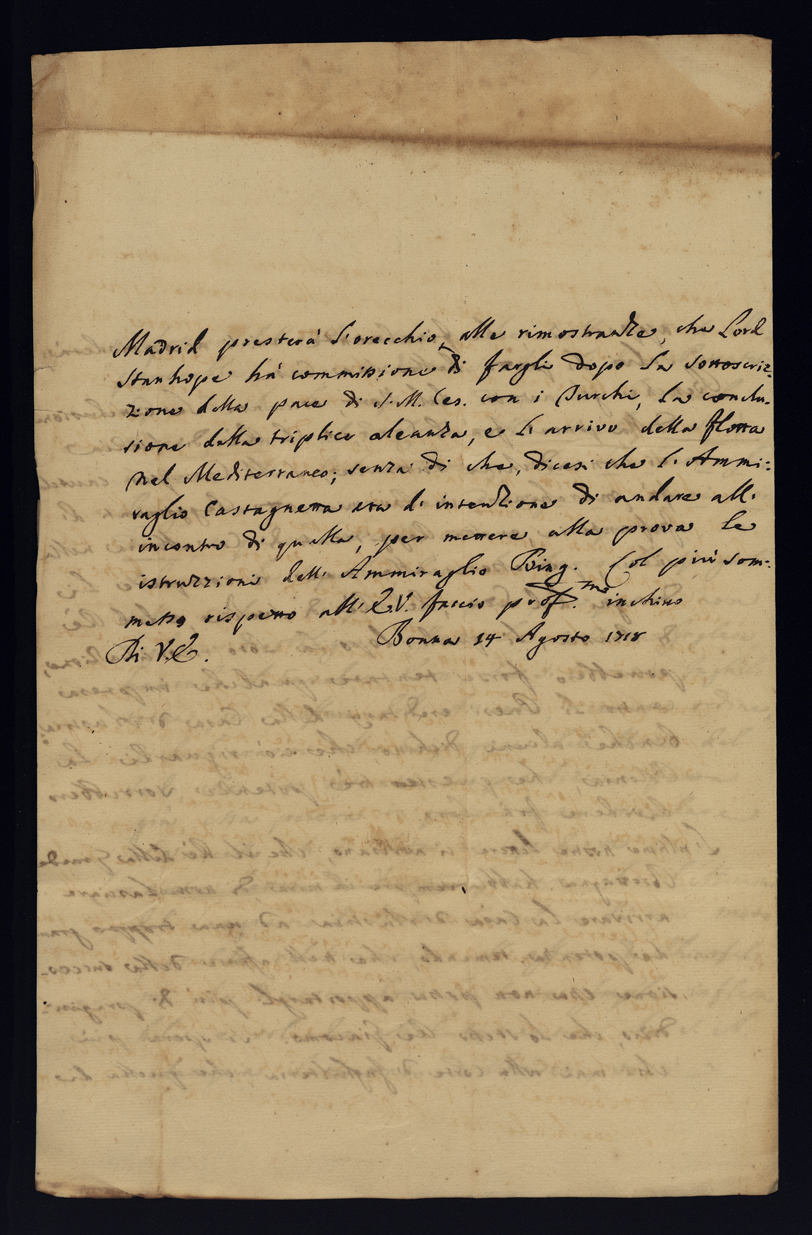 Madrid presterà l'orecchio, alle rimostranze, che Lord
Stanhope hà commissione di fargli dopo la sottoscriz-
zione della pace di S. M. Ces. con i Turchi, la conclu-
sione della triplice aleanza, e l'arrivo della flotta
nel Mediterraneo; senza di che, dicesi che l'Ammi-
raglio Castagnetta era d'intenzione di andare all'
incontro di quella, per mettere alla prova le
istruzzioni dell'Ammiraglio Bing. Col più som-
messo rispetto all'E.V. faccio prof.mo inchino
Di V.E. Bonna 14 Agosto 1718